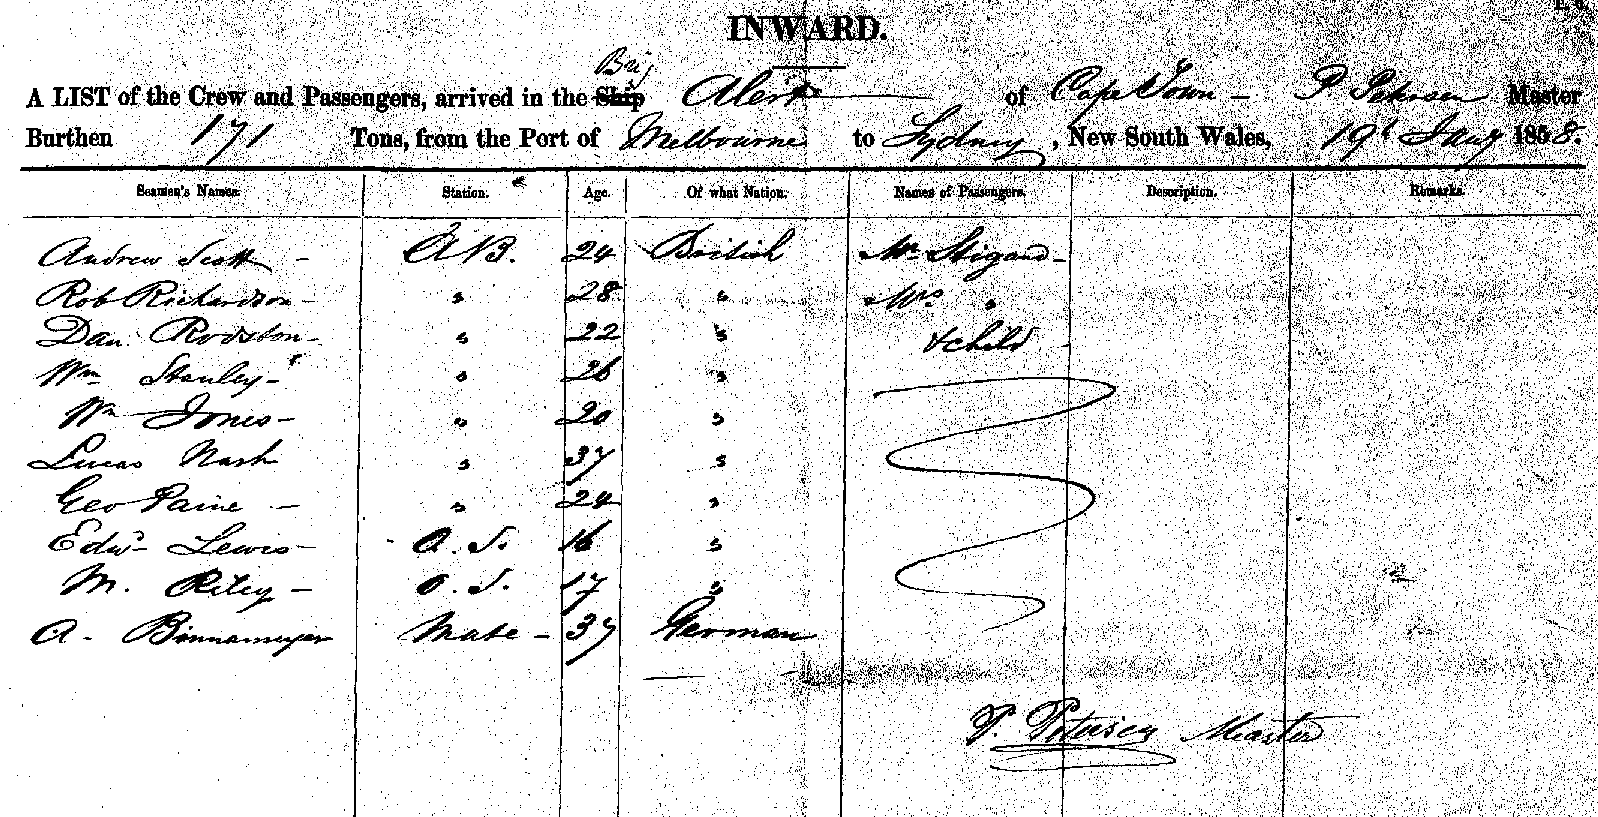 INWARD.
Brig
A LIST of the Crew and Passengers, arrived in the Ship Alert of Cape Town - P Petersen Master
Burthen 171 Tons, from the Port of Melbourne to Sydney, New South Wales, 19t Jany 1858.
Seamen's Names. Station. Age. Of what Nation. Names of Passengers. Description. Remarks.
Andrew Scott - AB. 24 British Mr Stigand -
Rob Richardson - " 28 " Mrs "
Dan. Rodston - " 22 " & child -
Wm Stanley - " 26 "
Wm Jones - " 20 "
Lucas Nash " 37 "
Geo Paine - " 24 "
Edwd Lewis - O. S. 16 "
M. Riley - O. S. 17 "
A. Binnameyer Mate - 37 German
P. Petersen Master